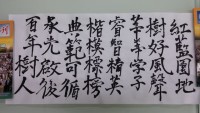 紅藍園地
樹好風聲
莘莘學子
睿智精英
楷模標榜
典範可循
承先啟後
百年樹人